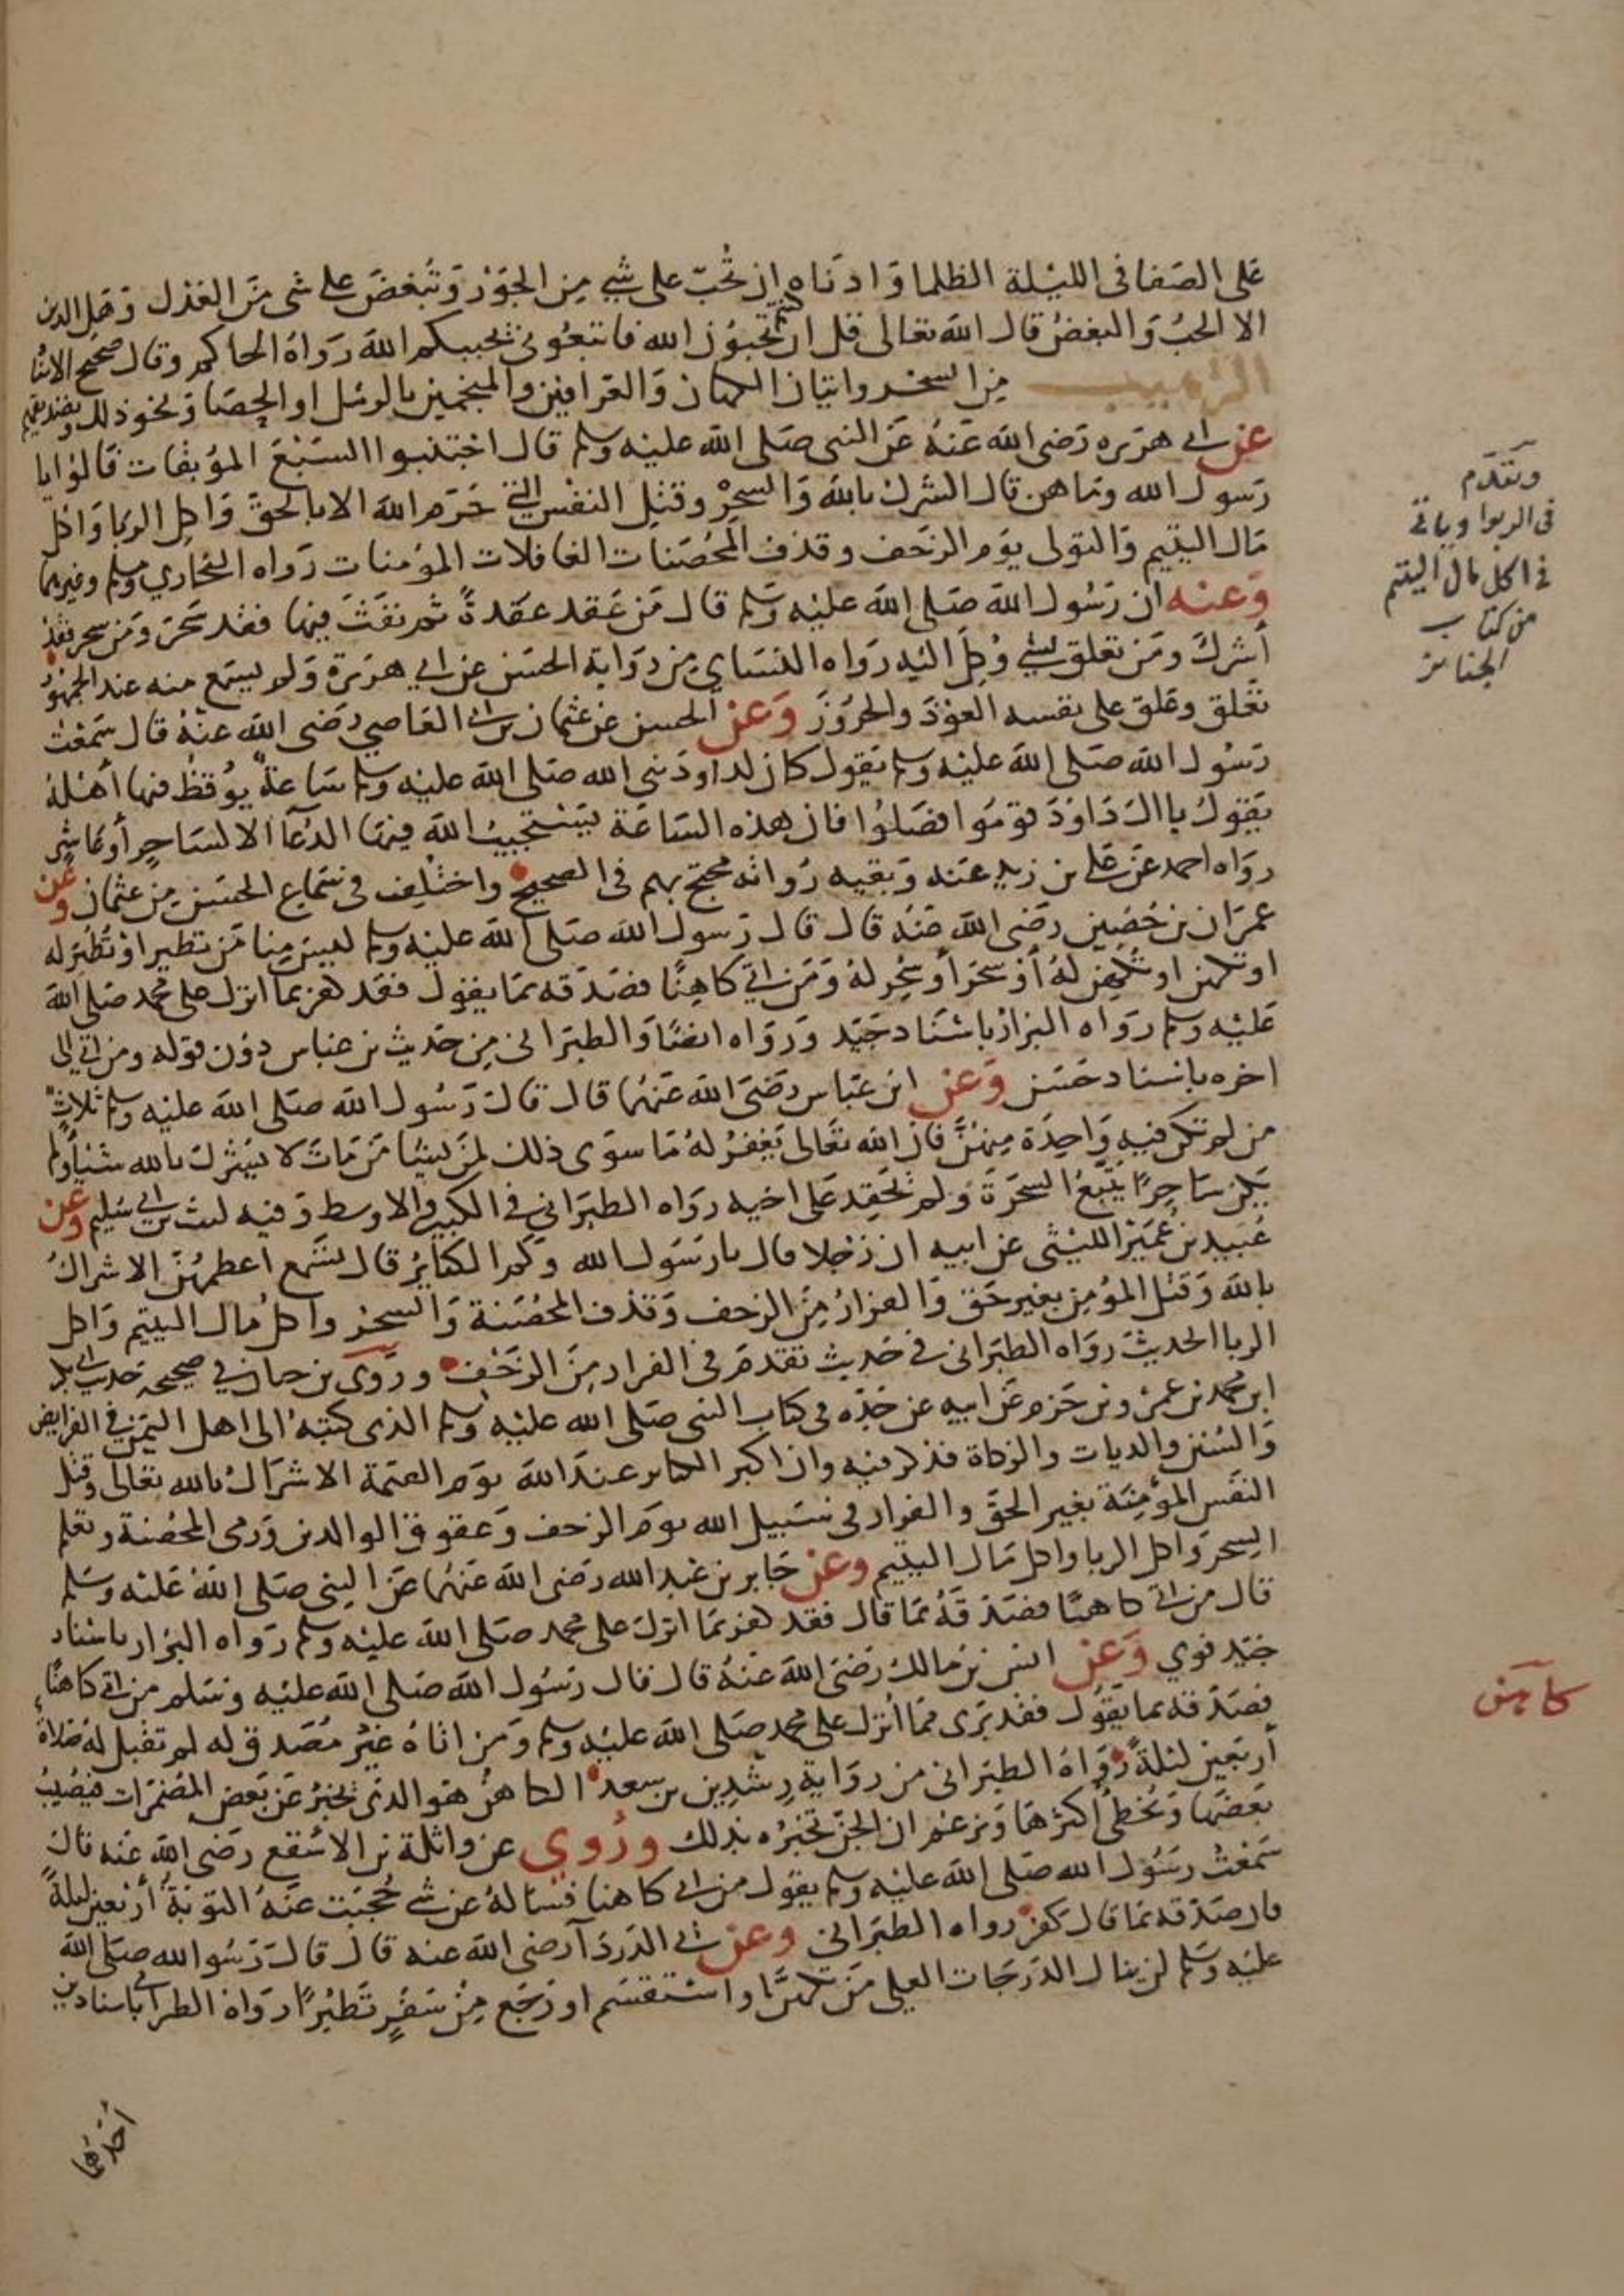 على الصفا في الليلة الظلما وادناه ان تحب على شي من الجور وتبغض على شي من العدل وهل الدين
الا الحب والبغض قال الله تعالى قل ان كنتم تحبون الله فاتبعوني يحببكم الله رواه الحاكم وقال صحيح الاسناد
الترهيب من السحر واتيان الكهان والعرافين والمنجمين بالرمل او الحصا ونحو ذلك وتصديقهم
عن ابي هريره رضي الله عنه عن النبي صلى الله عليه وسلم قال اجتنبوا السبع الموبقات قالوا يا
رسول الله وما هن قال الشرك بالله والسحر وقتل النفس التي حرم الله الا بالحق واكل الربا واكل
مال اليتيم والتولي يوم الزحف وقذف المحصنات الغافلات المؤمنات رواه البخاري ومسلم وغيرهما
وعنه ان رسول الله صلى الله عليه وسلم قال من عقد عقدة ثم نفث فيها فقد سحر ومن سحر فقد
أشرك ومن تعلق بشي وكل اليه رواه النساي من رواية الحسن عن ابي هريرة ولم يسمع منه عند الجمهور
تعلق وعلق على نفسه العوذ والحروز وعن الحسن عن عثمان بن ابي العاصي رضي الله عنه قال سمعت
رسول الله صلى الله عليه وسلم يقول كان لداود نبي الله صلى الله عليه وسلم ساعة يوقظ فيها أهله
يقول يا ال داود قوموا فصلوا فان هذه الساعة يستجيب الله فيها الدعآ الا لساحر أو عاشر
رواه احمد عن علي بن زيد عنه وبقيه رواته محتج بهم في الصحيح واختلف في سماع الحسن من عثمان وعن
عمران بن حصين رضي الله عنه قال قال رسول الله صلى الله عليه وسلم ليس منا من تطير او تطير له
او تكهن او تكهن له أو سحر أو سحر له ومن اتي كاهنا فصدقه بما يقول فقد كفر بما انزل على محمد صلى الله
عليه وسلم رواه البزار باسناد جيد ورواه ايضا والطبراني من حديث بن عباس دون قوله ومن اتي الى
اخره باسناد حسن وعن ابن عباس رضي الله عنهما قال قال رسول الله صلى الله عليه وسلم ثلاث
من لم تكن فيه واحدة منهن فان الله تعالى يغفر له ما سوى ذلك لمن يشا من مات لا يشرك بالله شيئا ولم
يكن ساحرا يتبع السحرة ولم يحقد على اخيه رواه الطبراني في الكبير والاوسط وفيه ليث بن ابي سليم وعن
عبيد بن عمير الليثي عن ابيه ان رجلا قال يا رسول الله وكم الكبائر قال تسع اعظمهن الاشراك
بالله وقتل المؤمن بغير حق والفرار من الزحف وقذف المحصنة والسحر واكل مال اليتيم واكل
الربا الحديث رواه الطبراني في حديث تقدم في الفرار من الزحف وروى بن حبان في صحيحه حديث ابي بكر
ابن محمد بن عمرو بن حزم عن ابيه عن جده في كتاب النبي صلى الله عليه وسلم الذي كتبه الى اهل اليمن في الفرايض
والسنن والديات والزكاة فذكر فيه وان اكبر الكبائر عند الله يوم القيمة الاشراك بالله تعالى وقتل
النفس المؤمنة بغير الحق والفرار في سبيل الله يوم الزحف وعقوق الوالدين ورمي المحصنة وتعلم
السحر واكل الربا واكل مال اليتيم وعن جابر بن عبد الله رضي الله عنهما عن النبي صلى الله عليه وسلم
قال من اتي كاهنا فصدقه بما قال فقد كفر بما انزل على محمد صلى الله عليه وسلم رواه البزار باسناد
جيد قوي وعن انس بن مالك رضي الله عنه قال قال رسول الله صلى الله عليه وسلم من اتي كاهنا
فصدقه بما يقول فقد برى مما أنزل على محمد صلى الله عليه وسلم ومن اتاه غير مصدق له لم تقبل له صلاة
أربعين ليلة رواه الطبراني من رواية رشدين بن سعد الكاهن هو الذي يخبر عن بعض المضمرات فيصيب
بعضها ويخطى أكثرها ويزعم ان الجن تخبره بذلك وروي عن واثلة بن الاسقع رضي الله عنه قال
سمعت رسول الله صلى الله عليه وسلم يقول من اتي كاهنا فساله عن شي حجبت عنه التوبة أربعين ليلة
فان صدقه بما قال كفر رواه الطبراني وعن ابي الدردآ رضي الله عنه قال قال رسول الله صلى الله
عليه وسلم لن ينال الدرجات العلى من تكهن او استقسم او رجع من سفر تطيرا رواه الطبراني باسنادين
أحدهما
وتقدم
في الربوا وياتي
في اكل مال اليتيم
من كتاب
الجنائز
كاهن